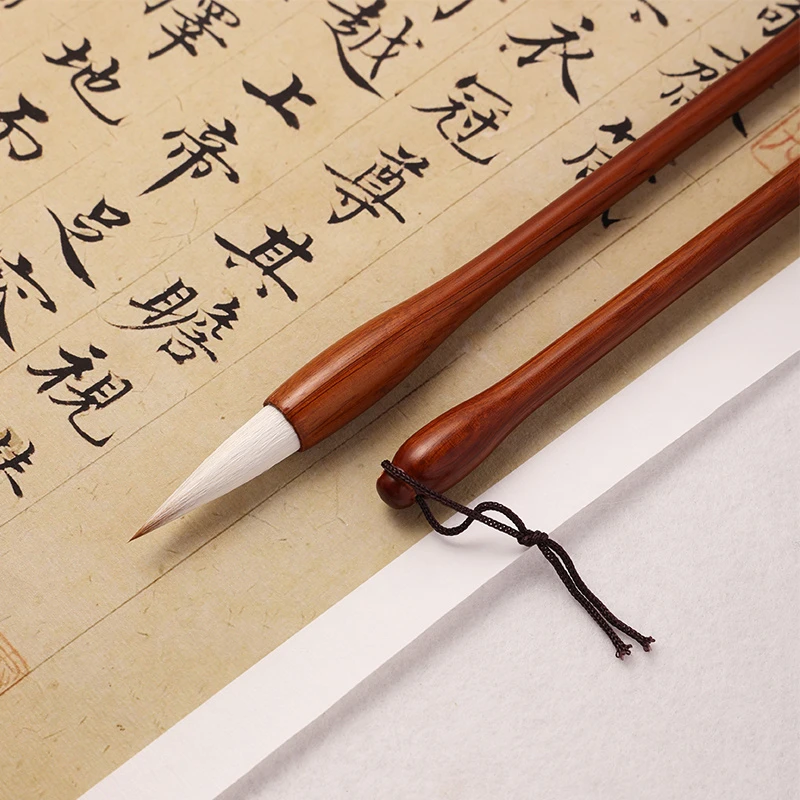 衣冠尊其瞻視
越上帝足容
擇地而